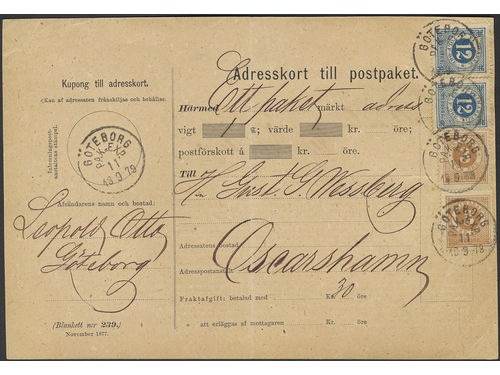 Kupong till adresskort.
(Kan af adressaten frånskiljas och behållas.
GÖTEBORG
PAK.EXP.
11
18 9 79
Afsändarens namn och bostad:
Leopold Otto
Göteborg
(Blankett n:r 239.)
November 1877.
Adresskort till postpaket.
Härmed Ett paket märkt adress
vigt 1 ℔; värde kr. öre;
postförskott à kr. öre;
Till Hr Gust. G. Wessberg
Adressatens bostad:
Adresspostanstalt: Oscarshamn
Fraktafgift: betalad med Kr. 30 öre
» att erläggas af mottagaren » öre
GÖTEBORG
12
12
GÖTEBORG
PAK.EXP.
18 9 79
GÖTEBORG
11
18 9 79